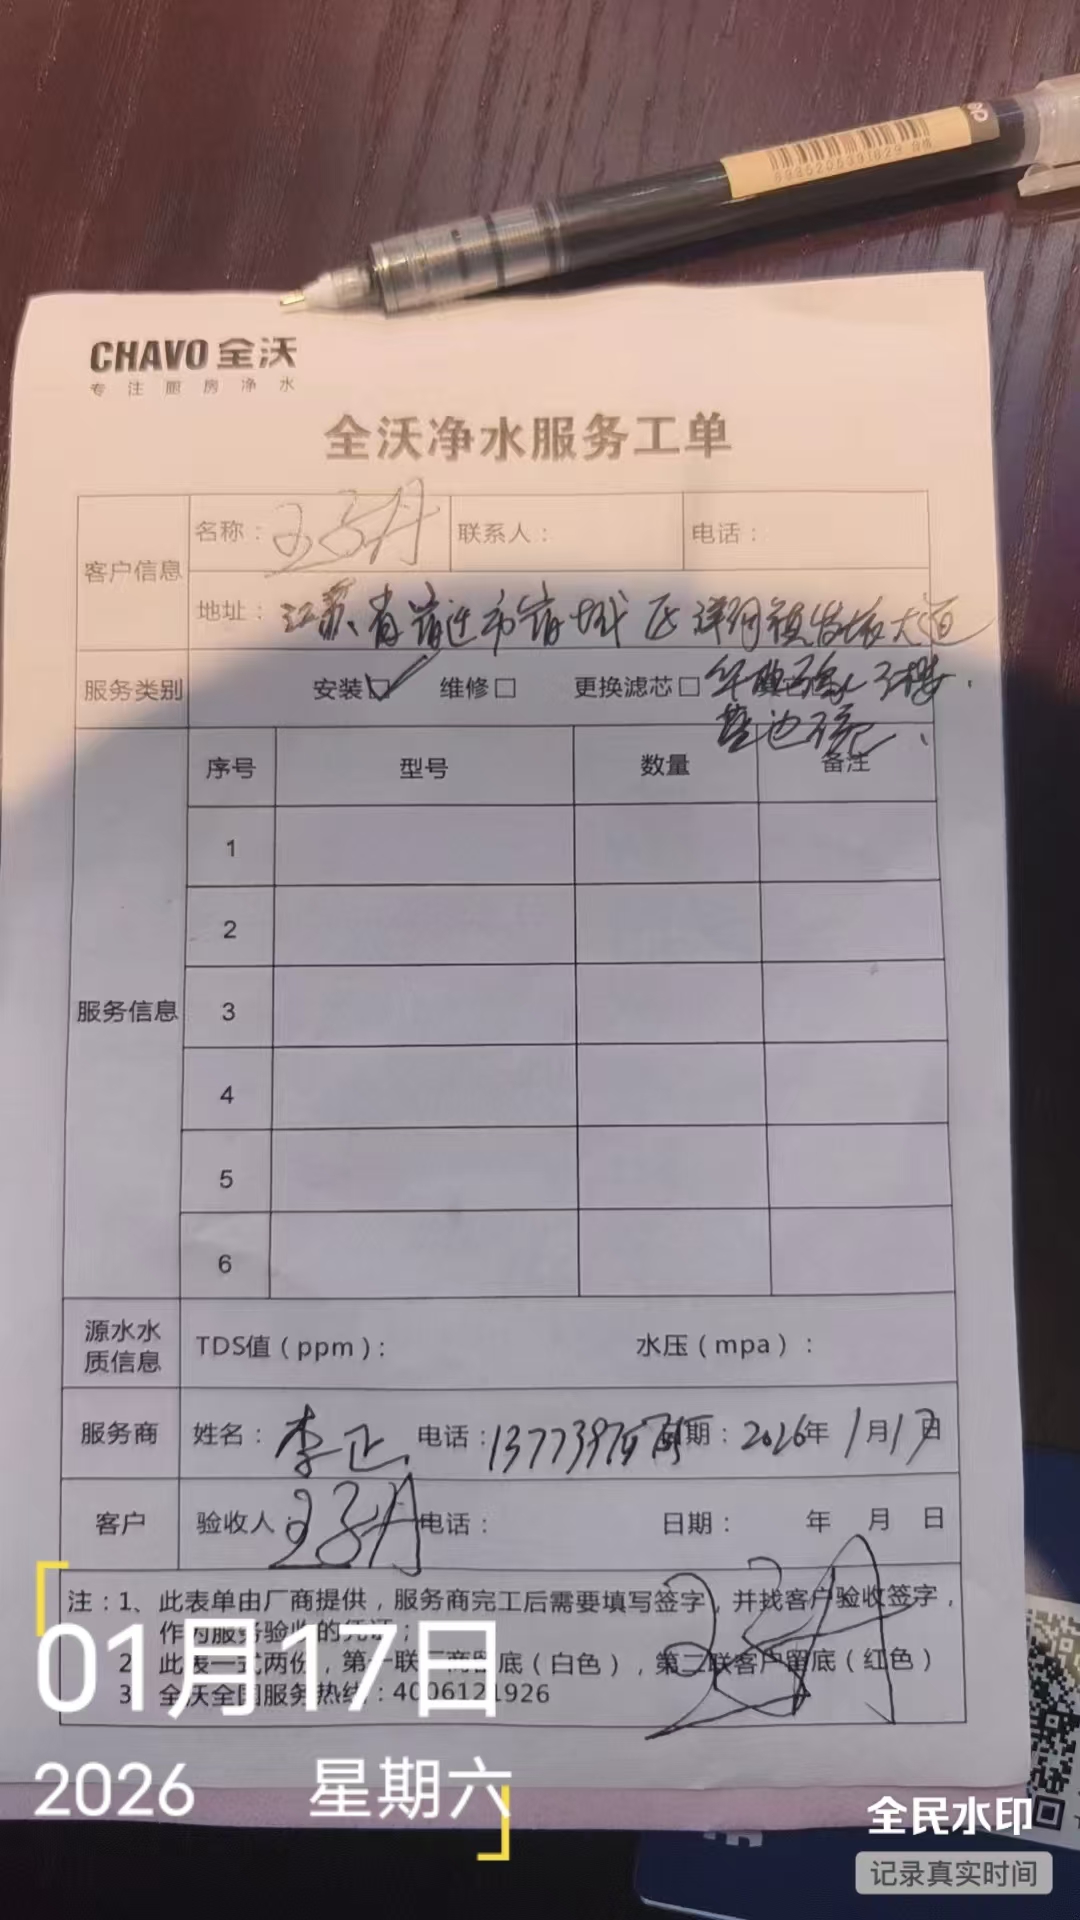 6935205391629
CHAVO 全沃
专注厨房净水
全沃净水服务工单
客户信息 名称： 王子月 联系人： 电话：
地址： 江苏省宿迁市宿城区洋河镇 大道
服务类别 安装☑ 维修□ 更换滤芯□
序号 型号 数量 备注
1
2
服务信息 3
4
5
6
源水水质信息 TDS值（ppm）： 水压（mpa）：
服务商 姓名： 李正 电话： 期： 2026年 1月17日
客户 验收人： 王子月 电话： 日期： 年 月 日
注：1、此表单由厂商提供，服务商完工后需要填写签字，并找客户验收签字，
作为服务验收的凭证；
2、此表一式两份，第一联厂商留底（白色），第二联客户留底（红色）
3、全沃全国服务热线：4006121926
王子月
01月17日
2026 星期六
全民水印
记录真实时间